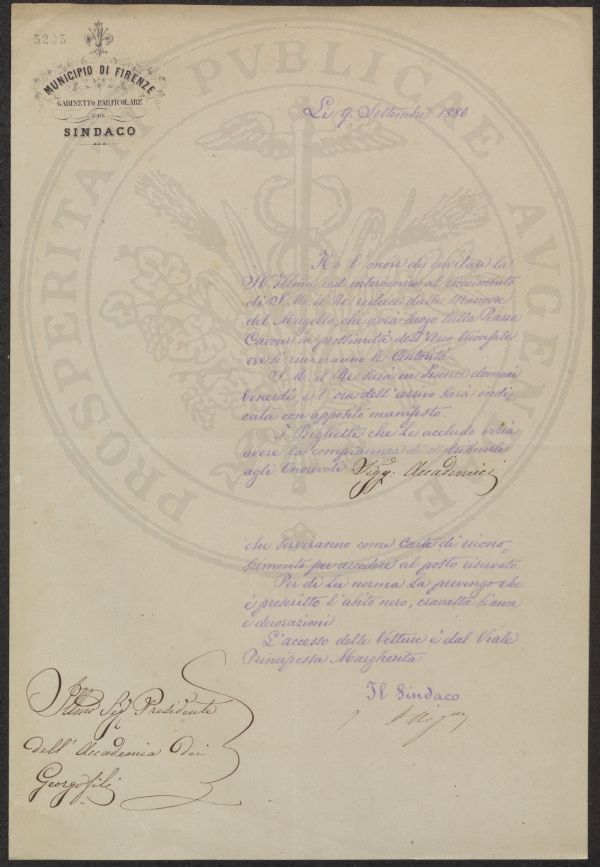 5295
MUNICIPIO DI FIRENZE
GABINETTO PARTICOLARE
DEL
SINDACO
PROSPERITATI PVBLICAE AVGENDAE
Li 9. Settembre 1886
Ho l'onore di invitare la
S.V. Illma ad intervenire al ricevimento
di S.M. il Re reduce dalle Manovre
del Mugello, che avrà luogo sulla Piazza
Cavour in prossimità dell'Arco trionfale
ove si riuniranno le Autorità.
S.M. il Re sarà in Firenze domani
Venerdì, e l'ora dell'arrivo sarà indi-
cata con apposito manifesto.
I Biglietti che Le accludo vorrà
avere la compiacenza di distribuirli
agli Onorevoli Sigg. Accademici
che serveranno come Carte di ricono-
scimento per accedere al posto riservato
Per di Lei norma La prevengo che
è prescritto l'abito nero, cravatta bianca
e decorazioni
L'accesso delle Vetture è dal Viale
Principessa Margherita
Il Sindaco
Illmo Sig Presidente
dell'Accademia dei
Georgofili